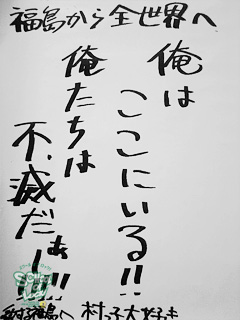 福島から全世界へ
俺は
ここにいる!!
俺たちは
不滅だぁー!!!
村っ子大好き